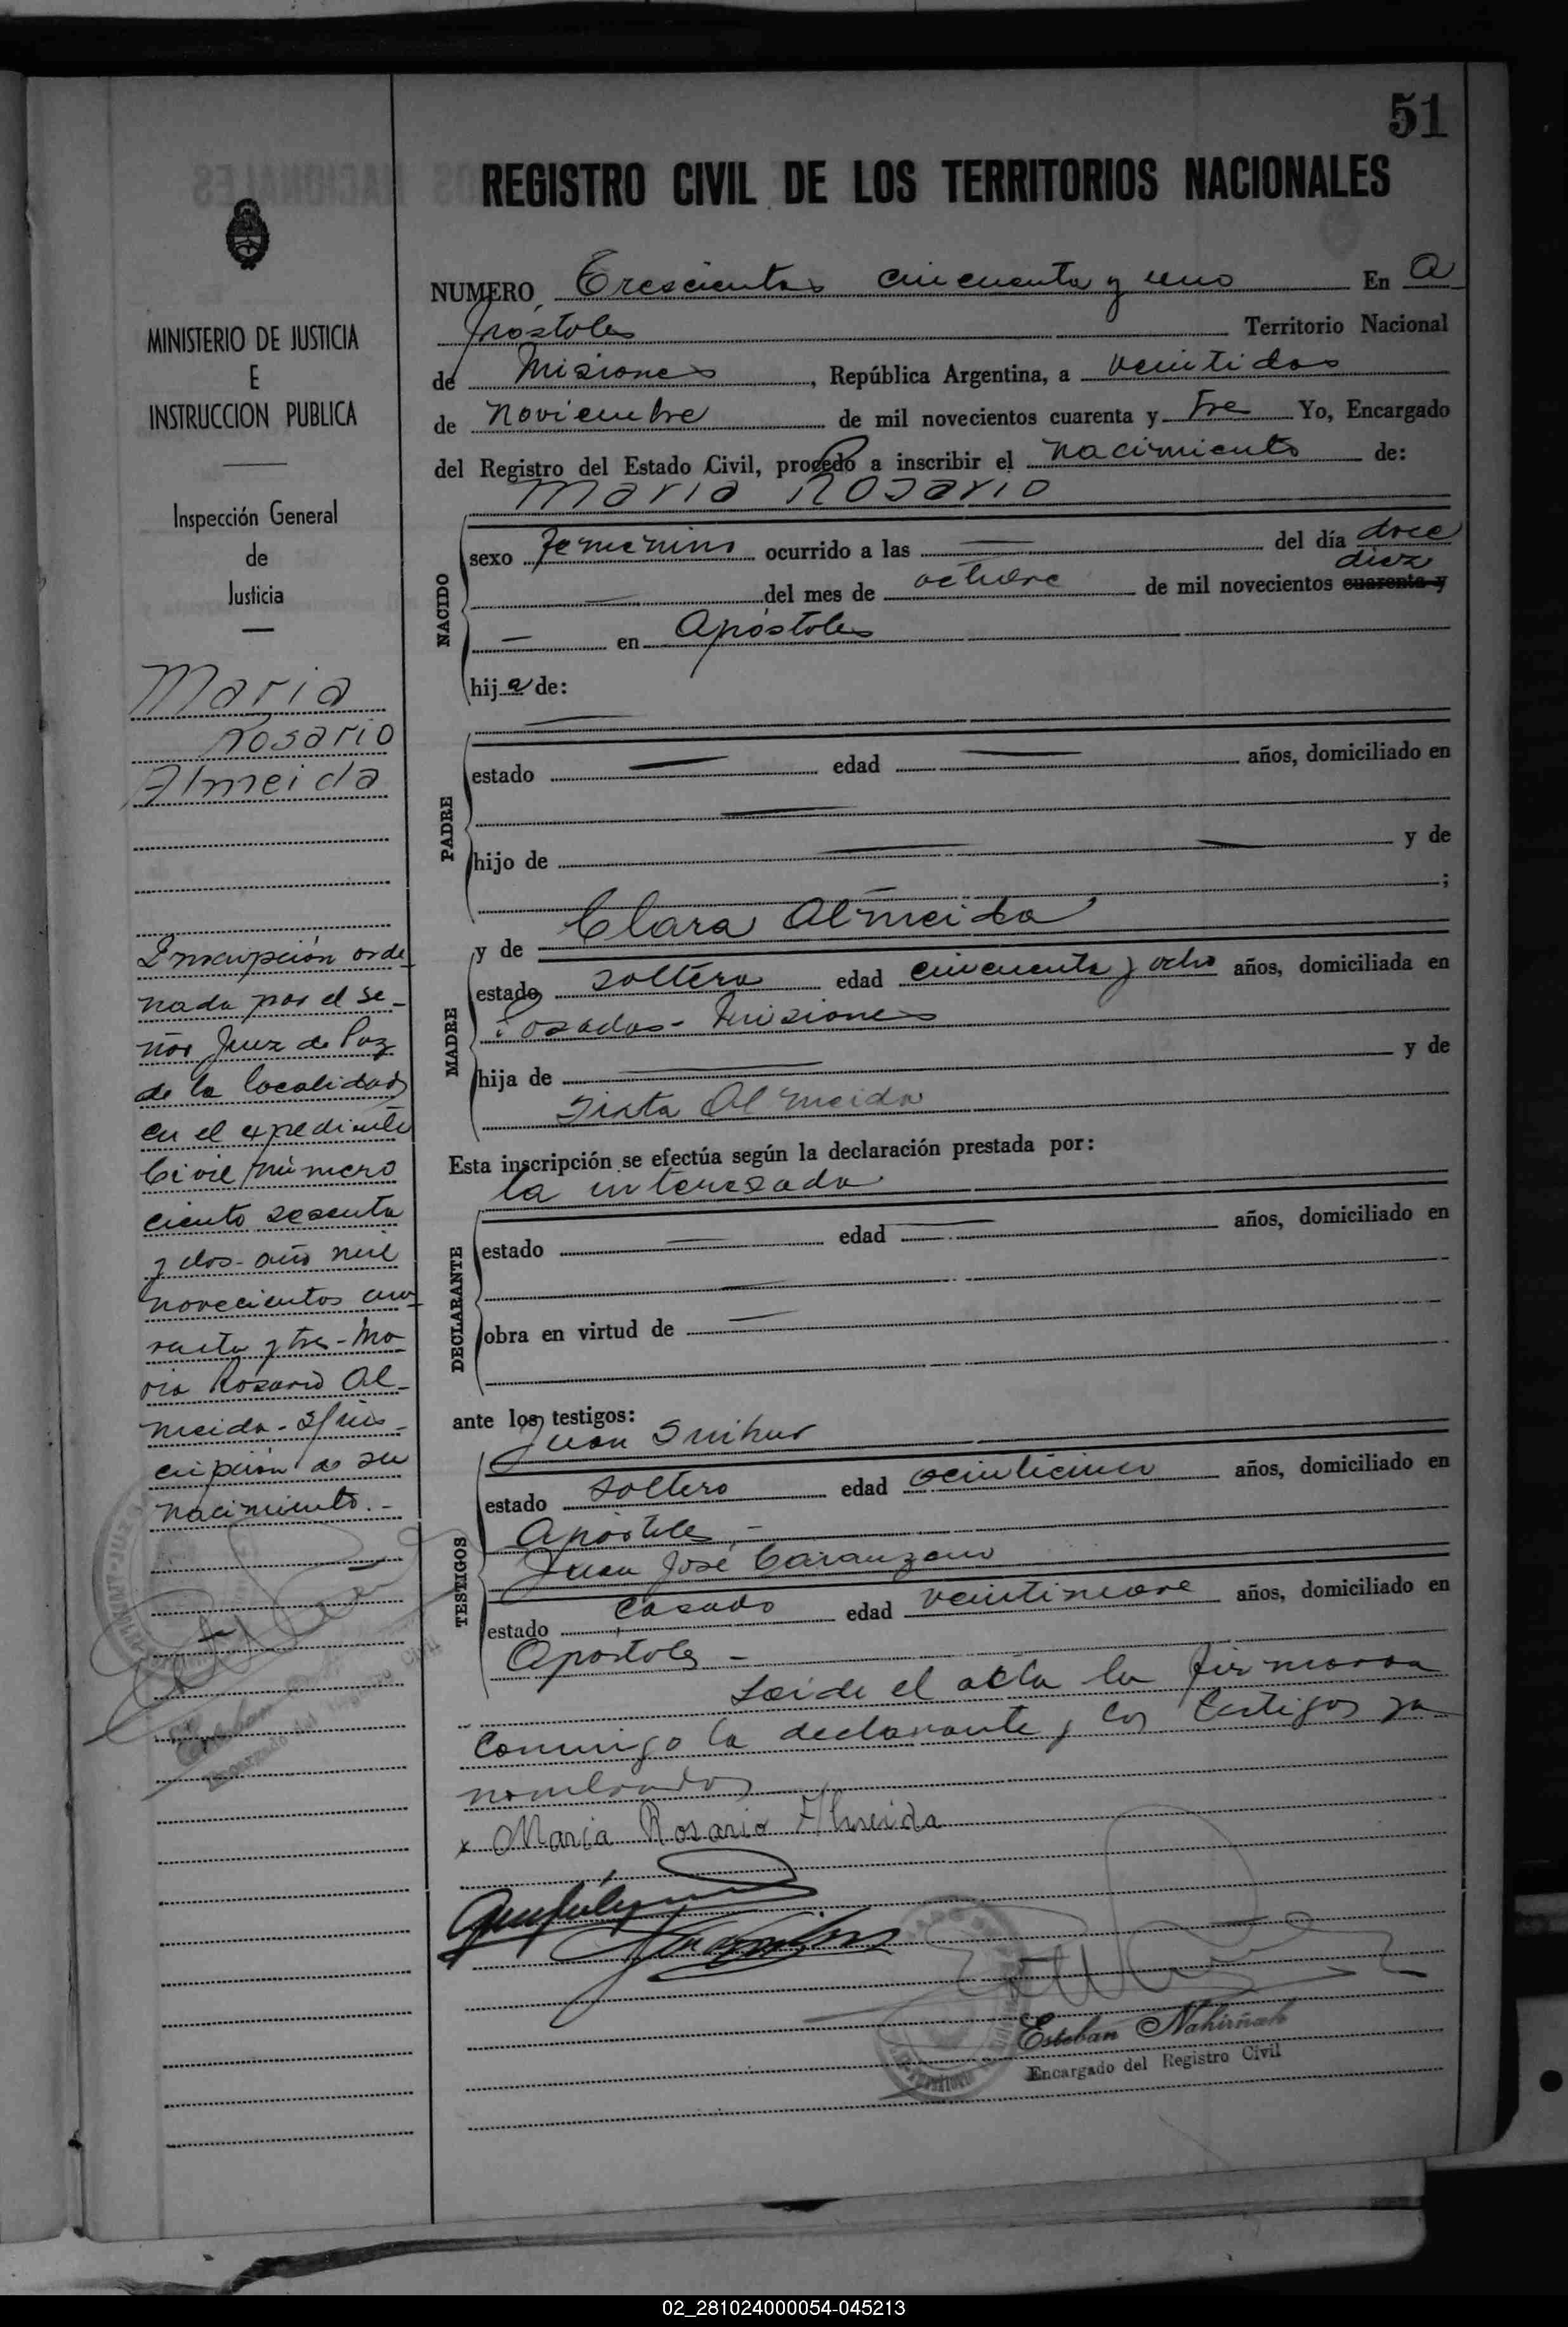 51
REGISTRO CIVIL DE LOS TERRITORIOS NACIONALES
MINISTERIO DE JUSTICIA
E
INSTRUCCION PUBLICA
Inspección General
de
Justicia
Maria
Rosario
Almeida
Inscripción orde-
nada por el se-
ñor Juez de Paz
de la localidad
en el expediente
Civil número
ciento sesenta
y dos - año mil
novecientos cua-
renta y tres - Ma-
ria Rosario Al-
meida - S/ins-
cripción de su
nacimiento. -
NUMERO Trescientos cincuenta y uno En A
póstoles Territorio Nacional
de Misiones, República Argentina, a veintidos
de Noviembre de mil novecientos cuarenta y tres Yo, Encargado
del Registro del Estado Civil, procedo a inscribir el nacimiento de:
Maria Rosario
NACIDO
sexo femenino ocurrido a las — del día doce
diez
— del mes de octubre de mil novecientos cuarenta y
— en Apóstoles
hija de:
PADRE
estado — edad — años, domiciliado en
hijo de — y de
;
y de Clara Almeida
MADRE
estado soltera edad cincuenta y ocho años, domiciliada en
Posadas - Misiones
hija de — y de
Sixta Almeida
Esta inscripción se efectúa según la declaración prestada por:
la interesada
DECLARANTE
estado — edad — años, domiciliado en
obra en virtud de —
ante los testigos:
Juan
TESTIGOS
estado soltero edad veinticinco años, domiciliado en
Apóstoles -
Juan José
estado casado edad veintinueve años, domiciliado en
Apóstoles -
Leida el acta la firmaron
conmigo la declarante y los testigos ya
nombrados
x Maria Rosario Almeida
Esteban Nahirñak
Encargado del Registro Civil
02_281024000054-045213